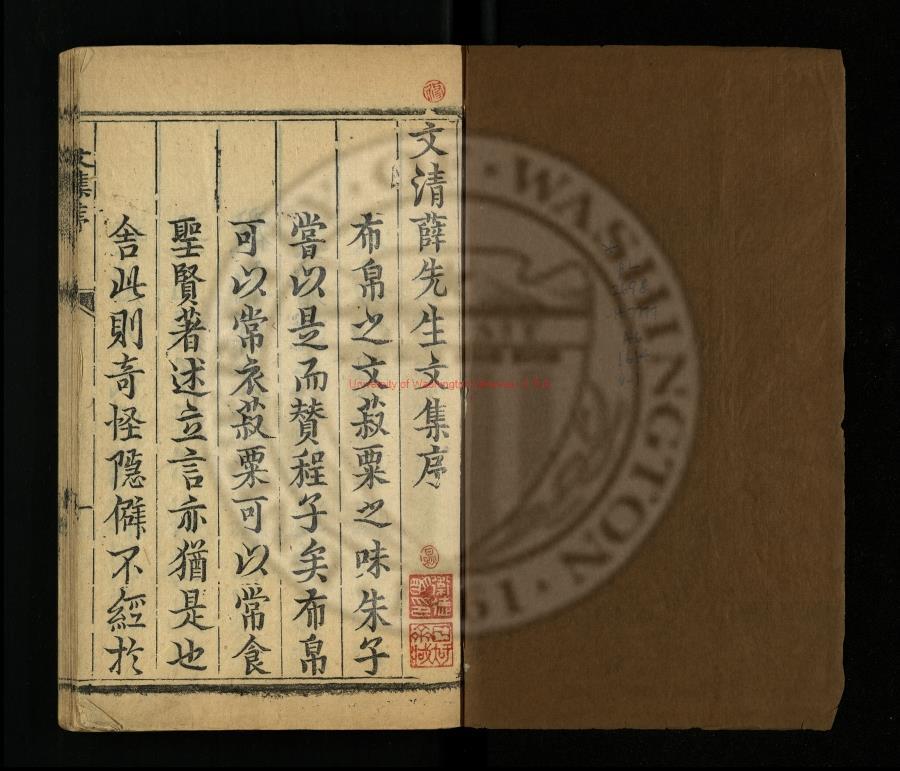 文清薛先生文集序
布帛之文菽粟之味朱子
嘗以是而贊程子矣布帛
可以常衣菽粟可以常食
聖賢著述立言亦猶是也
舍此則奇怪隱僻不經於
文集序
一
University of Washington Libraries, U.S.A.
WASHINGTON